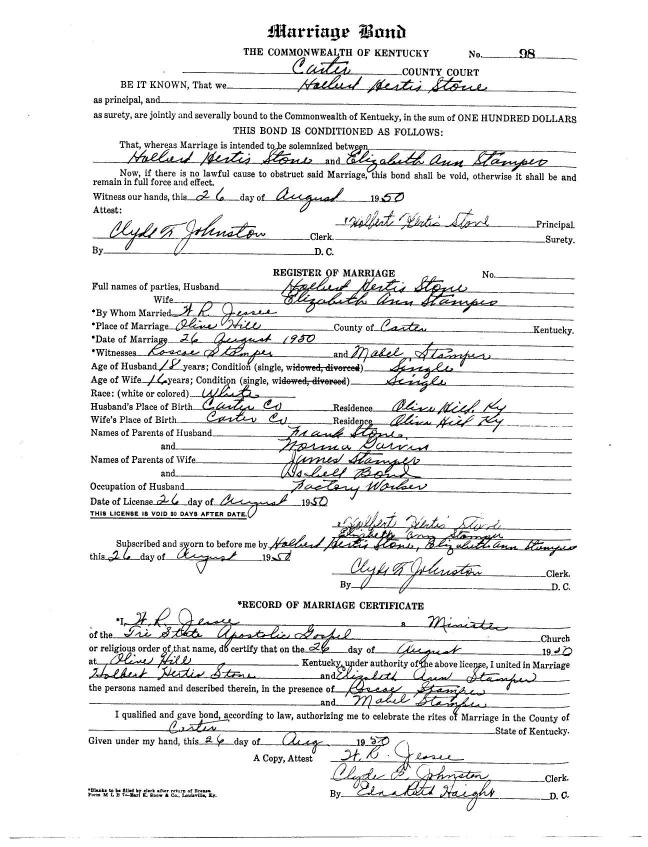 Marriage Bond
THE COMMONWEALTH OF KENTUCKY No. 98
Carter COUNTY COURT
BE IT KNOWN, That we Holbert Hertis Stone
as principal, and
as surety, are jointly and severally bound to the Commonwealth of Kentucky, in the sum of ONE HUNDRED DOLLARS
THIS BOND IS CONDITIONED AS FOLLOWS:
That, whereas Marriage is intended to be solemnized between
Holbert Hertis Stone and Elizabeth Ann Stamper
Now, if there is no lawful cause to obstruct said Marriage, this bond shall be void, otherwise it shall be and
remain in full force and effect.
Witness our hands, this 26 day of August 1950
Attest:
Holbert Hertis Stone Principal.
Clyde F Johnston Clerk. Surety.
By D. C.
REGISTER OF MARRIAGE No.
Full names of parties, Husband Holbert Hertis Stone
Wife Elizabeth Ann Stamper
*By Whom Married H R Jessee
*Place of Marriage Olive Hill County of Carter Kentucky.
*Date of Marriage 26 August 1950
*Witnesses Roscoe Stamper and Mabel Stamper
Age of Husband 18 years; Condition (single, widowed, divorced) Single
Age of Wife 16 years; Condition (single, widowed, divorced) Single
Race: (white or colored) White
Husband's Place of Birth Carter Co Residence Olive Hill Ky
Wife's Place of Birth Carter Co Residence Olive Hill Ky
Names of Parents of Husband Frank Stone
and Norma Garvin
Names of Parents of Wife James Stamper
and
Occupation of Husband Factory Worker
Date of License 26 day of August 1950
THIS LICENSE IS VOID 30 DAYS AFTER DATE.
Holbert Hertis Stone
Elizabeth Ann Stamper
Subscribed and sworn to before me by Holbert Hertis Stone, Elizabeth Ann Stamper
this 26 day of August 1950
Clyde F Johnston Clerk.
By D. C.
*RECORD OF MARRIAGE CERTIFICATE
*I, H. R. Jessee a Minister
of the Tri State Apostolic Gospel Church
or religious order of that name, do certify that on the 26 day of August 1950
at Olive Hill Kentucky, under authority of the above license, I united in Marriage
Holbert Hertis Stone and Elizabeth Ann Stamper
the persons named and described therein, in the presence of Roscoe Stamper
and Mabel Stamper
I qualified and gave bond, according to law, authorizing me to celebrate the rites of Marriage in the County of
Carter State of Kentucky.
Given under my hand, this 26 day of Aug 1950
H. R. Jessee
A Copy, Attest
Clyde F. Johnston Clerk.
By Elizabeth Haight D. C.
*Blanks to be filled by clerk after return of license
Form M L B 7—Earl K. Snow & Co., Louisville, Ky.